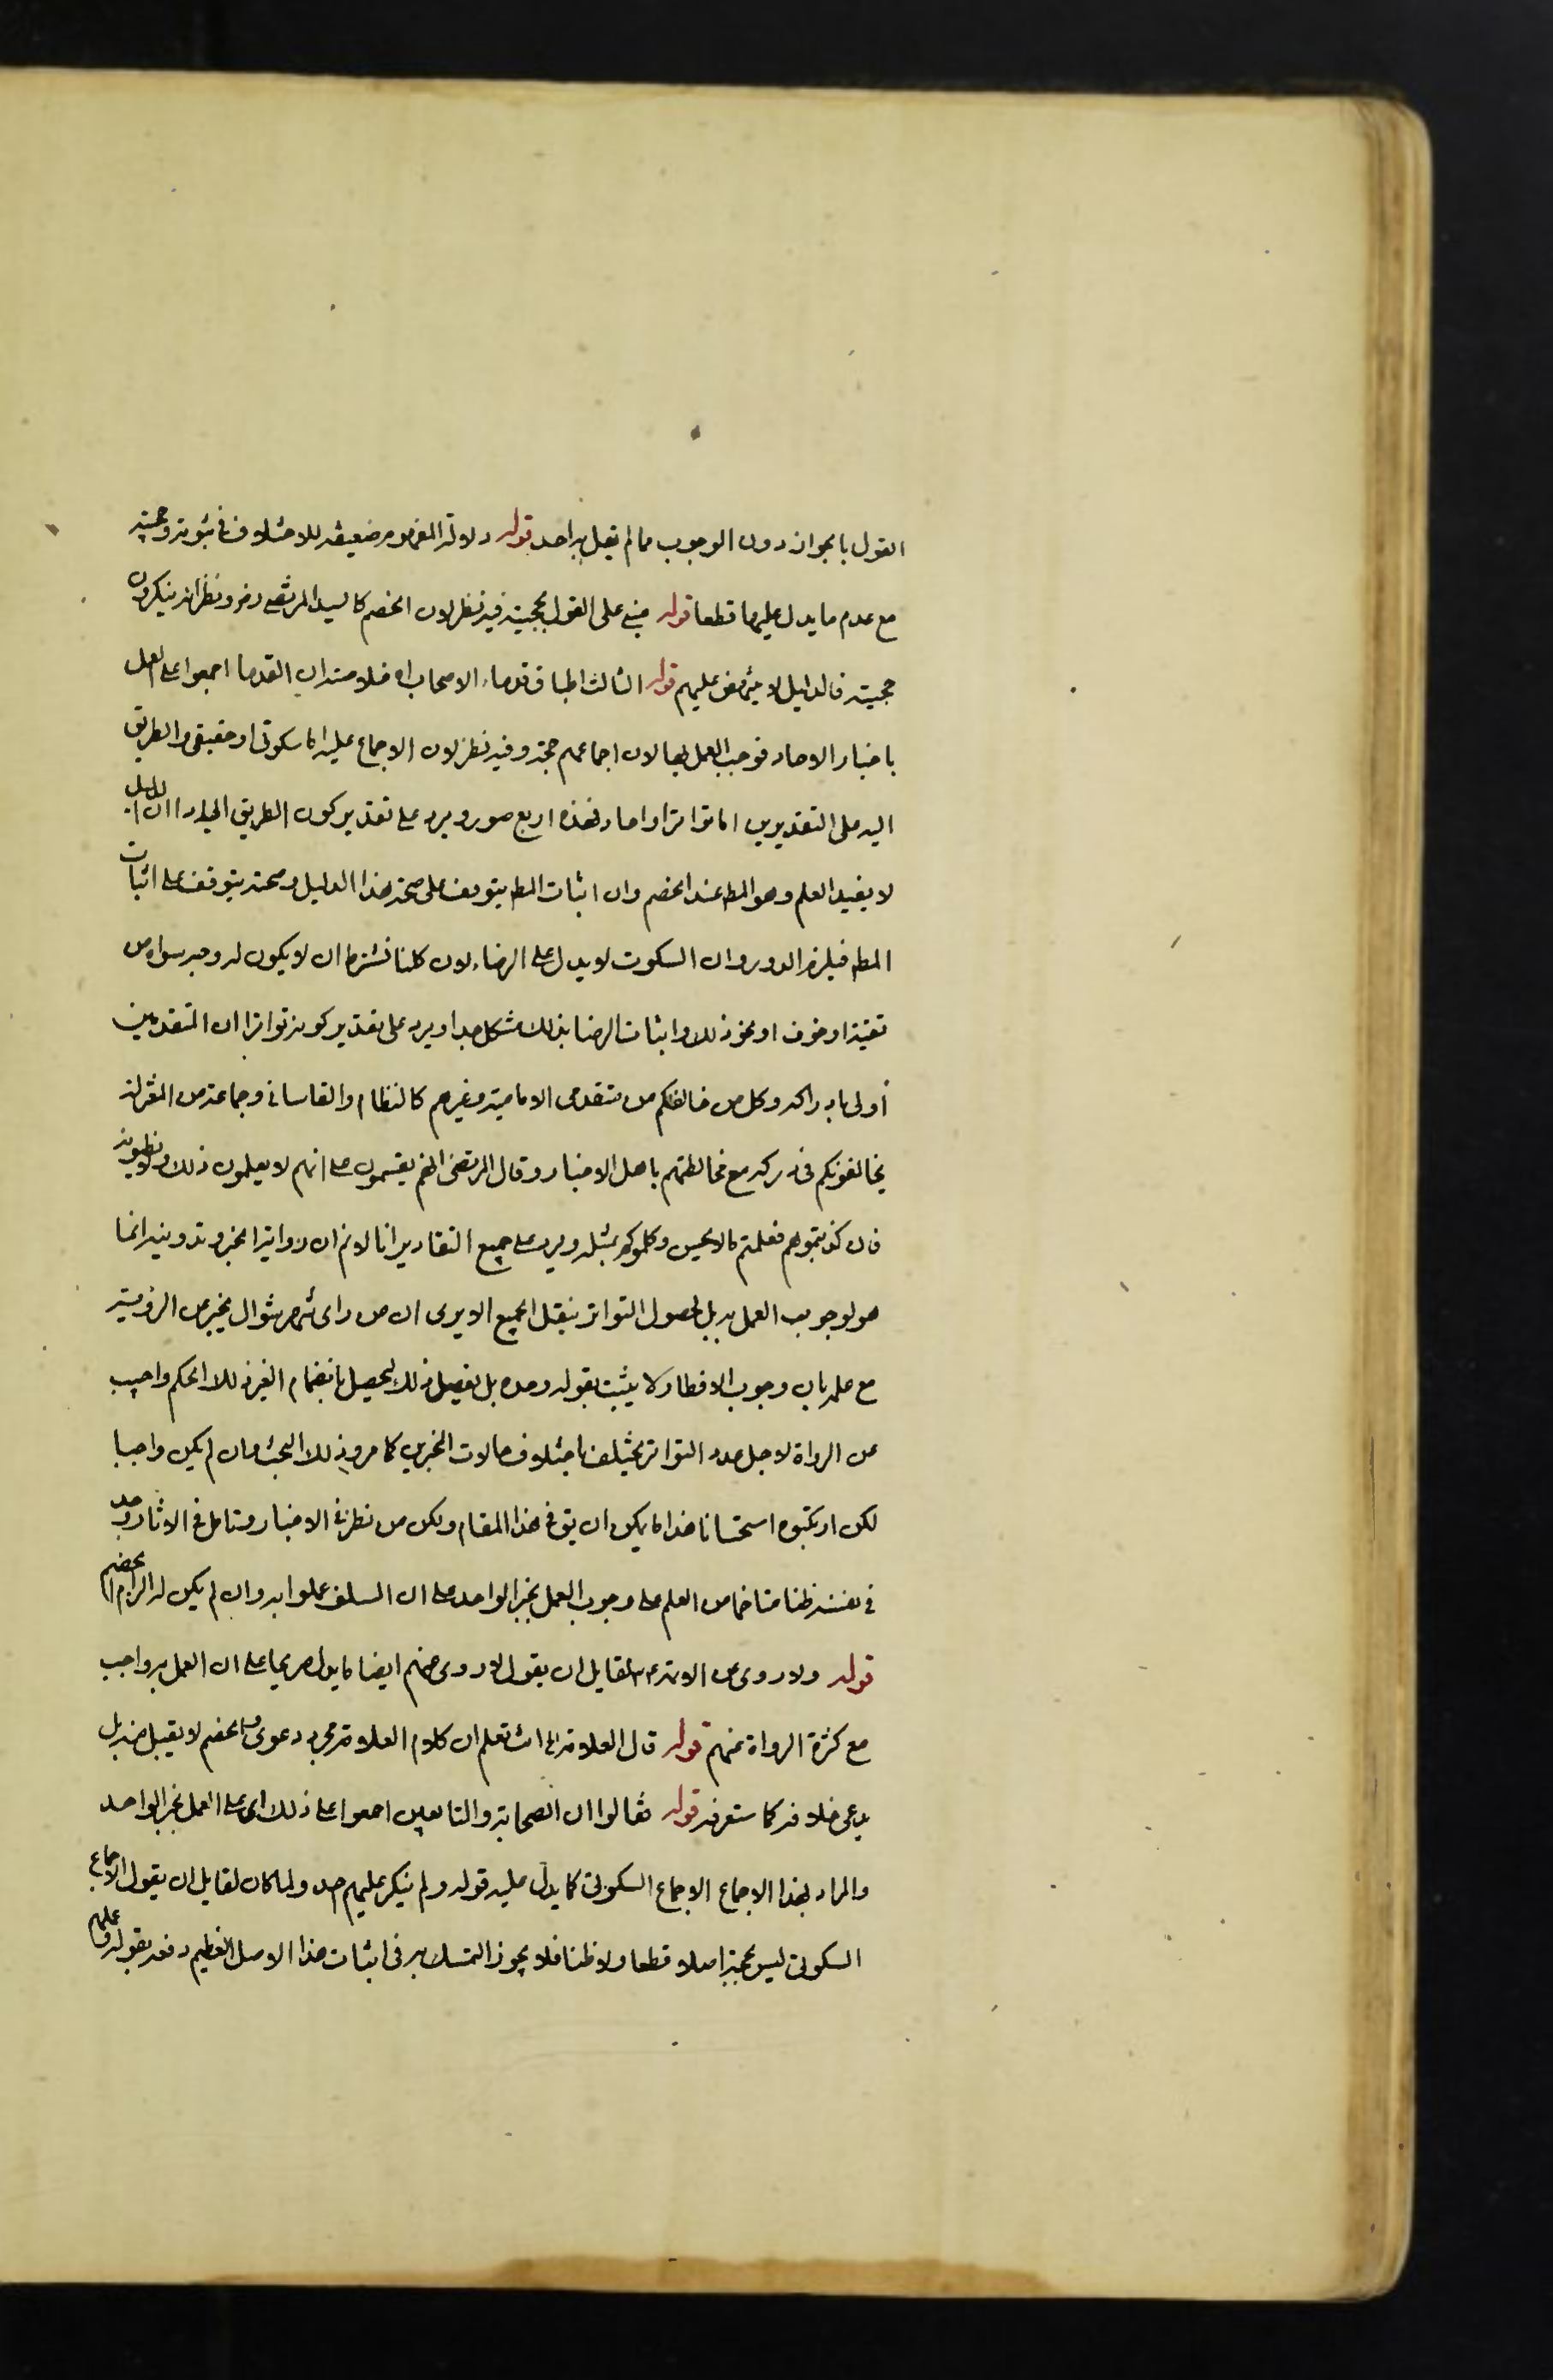 القول بالجواز دون الوجوب مما لم يقل به احد قوله دلالة المفهوم ضعيفة للاختلاف في ثبوته وحجيته
مع عدم ما يدل عليها قطعا قوله مبني على القول بحجيته فيه نظر لان الخصم كالسيد المرتضى رض ونظرائه ينكرون
حجيته فالدليل لا ينتهض عليهم قوله الثالث اطباق قدماء الاصحاب اه خلاصته ان القدما اجمعوا على العمل
باخبار الاحاد فوجب العمل بها لان اجماعهم حجة وفيه نظر لان الاجماع عليه اما سكوتي او حقيقي والطريق
اليه على التقديرين اما تواترا او احاد فهذه اربع صور ويرد على تقدير كون الطريق احادا ان الدليل
لا يفيد العلم وهو المط عند الخصم وان اثبات المط يتوقف على صحة هذا الدليل وصحته يتوقف على اثبات
المط فيلزم الدور وان السكوت لا يدل على الرضاء لان كلنا نشترط ان لا يكون له وجه سواه من
تقية او خوف او نحو ذلك واثبات الرضا بذلك مشكل جدا ويرد على تقدير كونه تواترا ان المتقدمين
أولى بادراكه وكل من خالفكم من متقدمى الامامية وغيرهم كالنظام والقاساني وجماعة من المعتزلة
يخالفونكم في دركه مع مخالطتهم باهل الاخبار وقال المرتضى انهم يقسمون على انهم لا يعلمون ذلك ولا يظنونه
فان كذبتموهم فعلتم ما لا يحسن وكلموكم بمثله ويرد على جميع التقادير انا لانم ان رواية الخبر وتدوينه انما
هو لوجوب العمل به بل لحصول التواتر بنقل الجميع الا يرى ان من راى شهر شوال يخبر عن الرؤية
مع علمه بان وجوب الافطار لا يثبت بقوله وحده بل يفعل ذلك ليحصل بانضمام الغير ذلك الحكم واجب
عن الرواة لاجل عدد التواتر يختلف باختلاف حالات المخبرين كما مر وذلك البحث وان لم يكن واجبا
لكن ارتكبوه استحسانا هذا ما يمكن ان يق في هذا المقام ولكن من نظر في الاخبار وتامل في الاثار وجد
في نفسه ظنا متاخما من العلم على وجوب العمل بخبر الواحد على ان السلف عملوا به وان لم يكن له الزام الخصم
قوله ولا روى عن الائمة ع لقايل ان يقول لا روى عنهم ايضا ما يدل صريحا على ان العمل به واجب
مع كثرة الرواة عنهم قوله قال العلامة الى انت تعلم ان كلام العلامة مجرد دعوى والخصم لا يقبل منه بل
يدعى خلافه كما ستعرفه قوله فقالوا ان الصحابة والتابعين اجمعوا على ذلك اى على العمل بخبر الواحد
والمراد بهذا الاجماع الاجماع السكوتي كما يدل عليه قوله ولم ينكر عليهم احد ولما كان لقايل ان يقول الاجماع
السكوتي ليس بحجة اصلا قطعا ولا ظنا فلا يجوز التمسك به في اثبات هذا الاصل العظيم دفعه بقوله